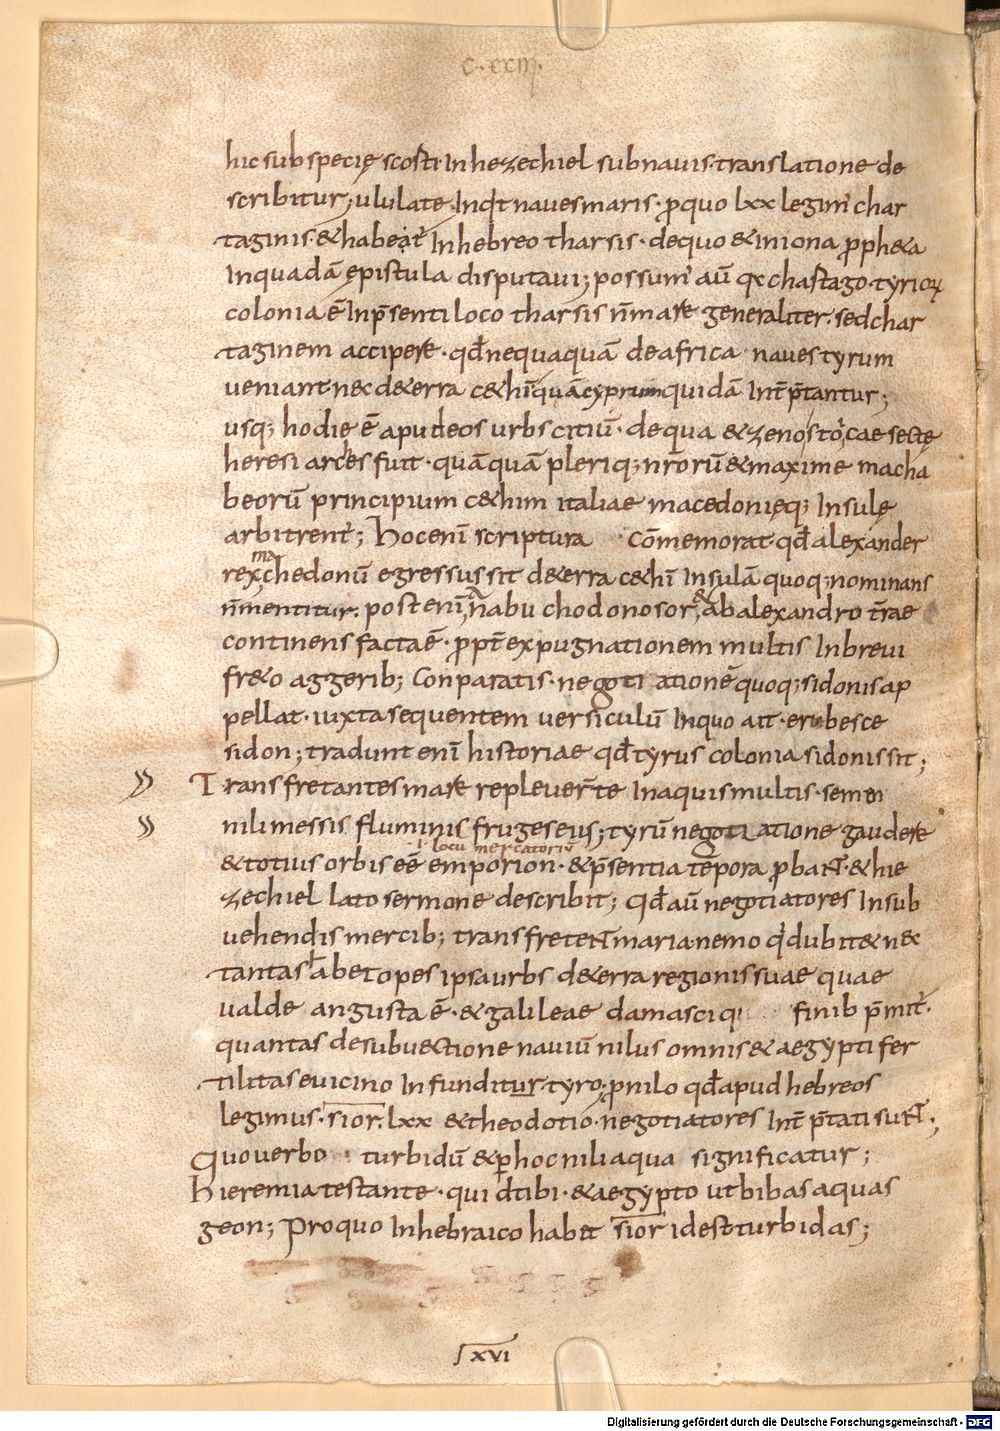 c. xxiii.
hic sub specię scosti. In hezechiel sub nauis. translatione de
scribitur; ululate. Inq̄t naues maris. p̱ quo lxx legim̄ char
taginis. & habet̄ In hebreo tharsis. de quo & In iona p̱ph&a
In quadā epistula disputaui; possum̄ aū q̄ chartago tyrioꝝ
colonia ē In p̄senti loco tharsis n̄ mare generaliter. sed char
taginem accipere. qđ nequaquā de africa naues tyrum
ueniant nec d& erra c&hī quā cyprum quidā Int̄p̄tantur;
usq; hodie ē apud eos urbs citiū. de qua & zenos stoicae sectę
heresiarches fuit. quāquā pleriq; nr̄orū & maxime macha
beorū principium c&him italiae macedonięq; Insulę
arbitrent̄; Hoc enī scriptura cōmemorat qđ alexander
rex machedonū egressus sit d& erra c&hī Insulā quoq; nominans
n̄ mentitur. post enī a nabuchodonosor, & ab alexandro t̄rae
continens facta ē. p̱pt̄ expugnationem multis In breui
fr&o aggerib; Conparatis. negotiationē quoq; sidonis ap
pellat. iuxta sequentem uersiculū In quo ait. erubesce
sidon; tradunt enī historiae qđ tyrus colonia sidonis sit;
Transfretantes mare repleuer̄ te In aquis multis. semen
nili messis fluminis fruges eius; tyrū negotiatione gaudere
.i. locū mercatoriū
& totius orbis eē emporion. & p̄sentia tēpora p̱bant. & hie
zechiel lato sermone describit; Qđ aū negotiatores In sub
uehendis mercib; transfretent maria nemo q̇ dubitet nec
tantas habet opes ipsa urbs d& erra regionis suae quae
ualde angusta ē. & galileae damasciq; finib p̄mit̄.
quantas de subuectione nauiū nilus omnis & aegypti fer
tilitas e uicino Infunditur tyro. p̱ nilo qđ apud hebreos
legimus. sior. lxx & theodotio. negotiatores Int̄p̄tati sunt;
Quo uerbo turbidū & p̱ hoc nili aqua significatur;
Hieremia testante. quid tibi. & aegypto ut bibas aquas
geon; Pro quo In hebraico habet sior id est turbidas;
xvi
Digitalisierung gefördert durch die Deutsche Forschungsgemeinschaft - DFG